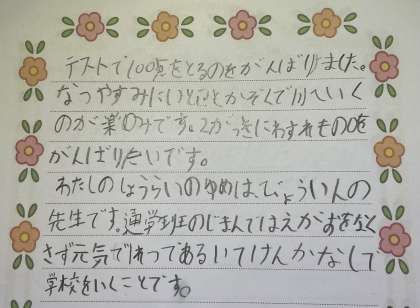 テストで100点をとるのをがんばりました。
なつやすみにいとことかぞくで川でいく
のが楽のみです。2がっきにわすれもの0を
がんばりたいです。
わたしのしょうらいのゆめは、びょういんの
先生です。通学班のじまんではえがおをなく
さず元気でわってあるいてけんかなしで
学校をいくことです。